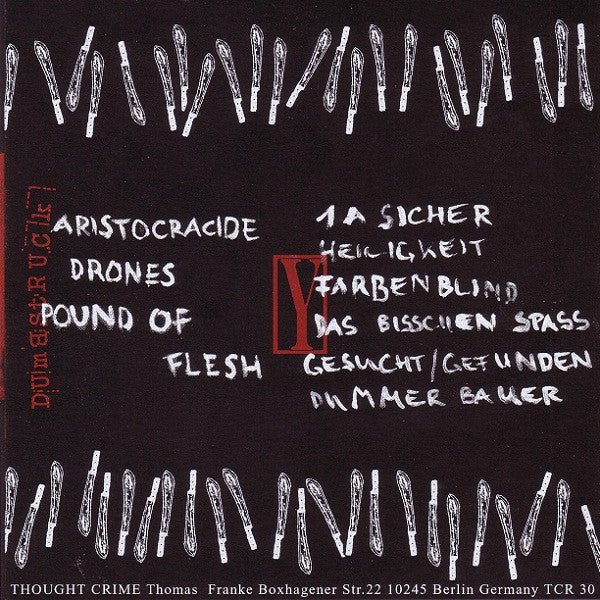 DUMBSTRUCK
ARISTOCRACIDE
DRONES
POUND OF
FLESH
Y
1A SICHER
HEILIGKEIT
FARBENBLIND
DAS BISSCHEN SPASS
GESUCHT/GEFUNDEN
DUMMER BAUER
THOUGHT CRIME Thomas Franke Boxhagener Str.22 10245 Berlin Germany TCR 30